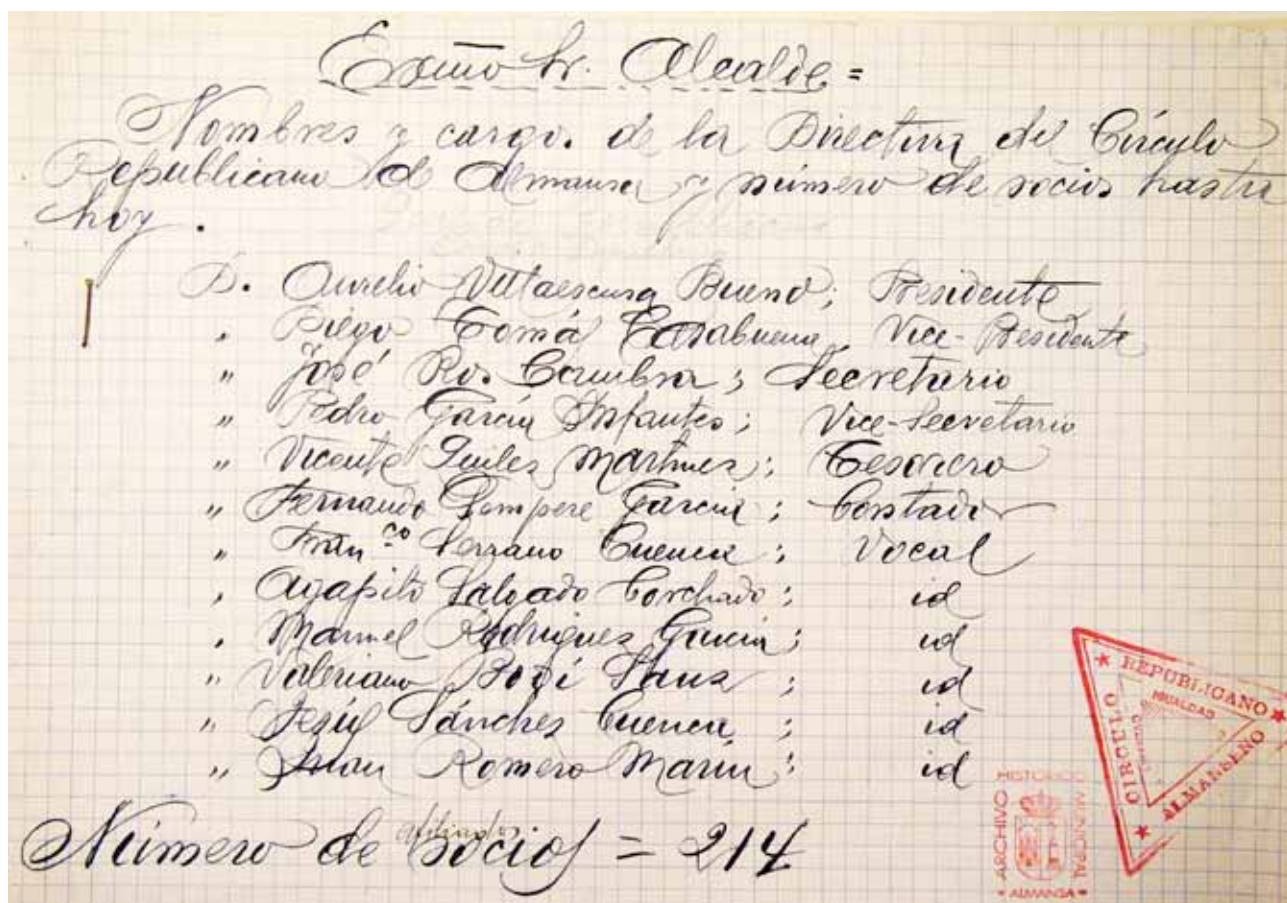 Exmo Sr. Alcalde =
Nombres y cargos de la Directiva del Círculo
Republicano de Almansa y número de socios hasta
hoy.
D. Aurelio Villaescusa Bueno; Presidente
" Diego Tomá Casabuena, Vice-Presidente
" José Ros Coimbra; Secretario
" Pedro García Infantes; Vice-Secretario
" Vicente Guiles Martines; Tesorero
" Fernando Gempere Garcia; Contador
" Fran.co Serrano Cuenca; Vocal
" Agapito Salgado Corchado; id
" Manuel Rodrigues Garcia; id
" Valeriano Sanz; id
" Jesús Sánches Cuenca; id
" Juan Romero Marin; id
afiliados
Número de socios = 214
CIRCULO REPUBLICANO ALMANSEÑO
IGUALDAD
ARCHIVO HISTORICO MUNICIPAL
ALMANSA